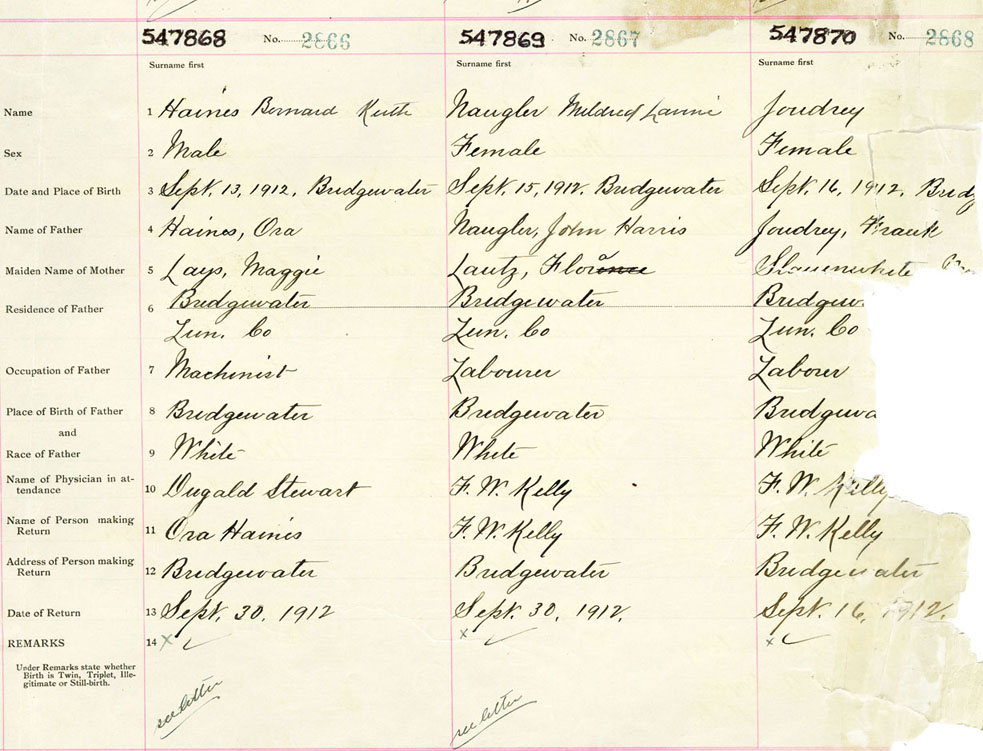 547868 No. 2866 547869 No. 2867 547870 No. 2868
Surname first Surname first Surname first
Name 1 Haines Bernard Keith Naugler Mildred Joudrey
Sex 2 Male Female Female
Date and Place of Birth 3 Sept. 13, 1912, Bridgewater Sept. 15, 1912. Bridgewater Sept. 16, 1912, Bridg
Name of Father 4 Haines, Ora Naugler, John Harris Joudrey, Frank
Maiden Name of Mother 5 Lays, Maggie Lautz, Slauenwhite
Residence of Father 6 Bridgewater Bridgewater Bridgew
Lun. Co Lun. Co Lun. Co
Occupation of Father 7 Machinist Labourer Laborer
Place of Birth of Father 8 Bridgewater Bridgewater Bridgewa
and
Race of Father 9 White White White
Name of Physician in at-
tendance 10 Dugald Stewart F. W. Kelly F. W. Kelly
Name of Person making
Return 11 Ora Haines F. W. Kelly F. W. Kelly
Address of Person making
Return 12 Bridgewater Bridgewater Bridgewater
Date of Return 13 Sept. 30. 1912 Sept. 30, 1912. Sept. 16, 1912.
REMARKS 14 x ✓ x ✓ x ✓
Under Remarks state whether
Birth is Twin, Triplet, Ille-
gitimate or Still-birth.
see letter see letter